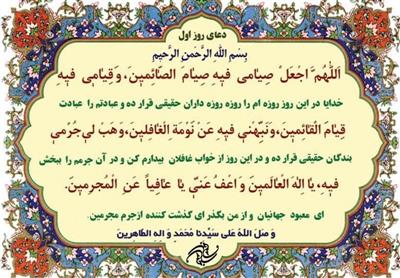 دعای روز اول
بِسْمِ اللهِ الرَّحْمنِ الرَّحیمِ
اَللّهُمَّ اجْعَلْ صِیامی فیهِ صِیامَ الصّائِمینَ، وَ قِیامی فیهِ
خدایا در این روز روزه ام را روزه روزه داران حقیقی قرار ده و عبادتم را عبادت
قِیامَ الْقائِمینَ، وَ نَبِّهْنی فیهِ عَنْ نَوْمَةِ الْغافِلینَ، وَ هَبْ لی جُرْمی
بندگان حقیقی قرار ده و در این روز از خواب غافلان بیدارم کن و در آن جرمم را ببخش
فیهِ، یا اِلهَ الْعالَمینَ وَ اعْفُ عَنّی یا عافِیاً عَنِ الْمُجْرِمینَ.
ای معبود جهانیان و از من بگذر ای گذشت کننده ازجرم مجرمین.
وَ صَلَّ اللهُ عَلی سَیِّدِنا مُحَمَّدٍ وَ الِهِ الطّاهِرینَ